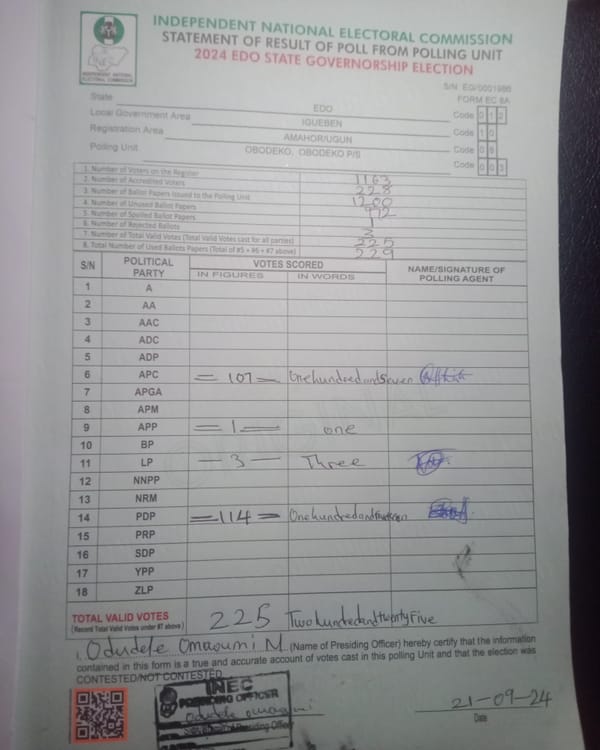 INDEPENDENT NATIONAL ELECTORAL COMMISSION
STATEMENT OF RESULT OF POLL FROM POLLING UNIT
2024 EDO STATE GOVERNORSHIP ELECTION
INEC
INDEPENDENT NATIONAL ELECTORAL COMMISSION
FORM EC 8A
State EDO Code 012
Local Government Area IGUEBEN Code 10
Registration Area AMAHOR/UGUN Code 08
Polling Unit OBODEKO, OBODEKO P/S Code 003
1. Number of Voters on the Register 1163
2. Number of Accredited Voters 228
3. Number of Ballot Papers Issued to the Polling Unit 1200
4. Number of Unused Ballot Papers 972
5. Number of Spoiled Ballot Papers 1
6. Number of Rejected Ballots 3
7. Number of Total Valid Votes (Total Valid Votes cast for all parties) 225
8. Total Number of Used Ballots Papers (Total of #5 + #6 + #7 above) 229
S/N POLITICAL PARTY VOTES SCORED NAME/SIGNATURE OF POLLING AGENT
IN FIGURES IN WORDS
1 A
2 AA
3 AAC
4 ADC
5 ADP
6 APC =107= One hundred and Seven
7 APGA
8 APM
9 APP =1= one
10 BP
11 LP -3- Three
12 NNPP
13 NRM
14 PDP =114= One hundred and
15 PRP
16 SDP
17 YPP
18 ZLP
TOTAL VALID VOTES 225 Two hundred and twenty Five
(Record Total Valid Votes under #7 above)
I, Odudele M. (Name of Presiding Officer) hereby certify that the information
contained in this form is a true and accurate account of votes cast in this polling Unit and that the election was
CONTESTED/NOT CONTESTED.
INEC
PRESIDING OFFICER
21-09-24
Date